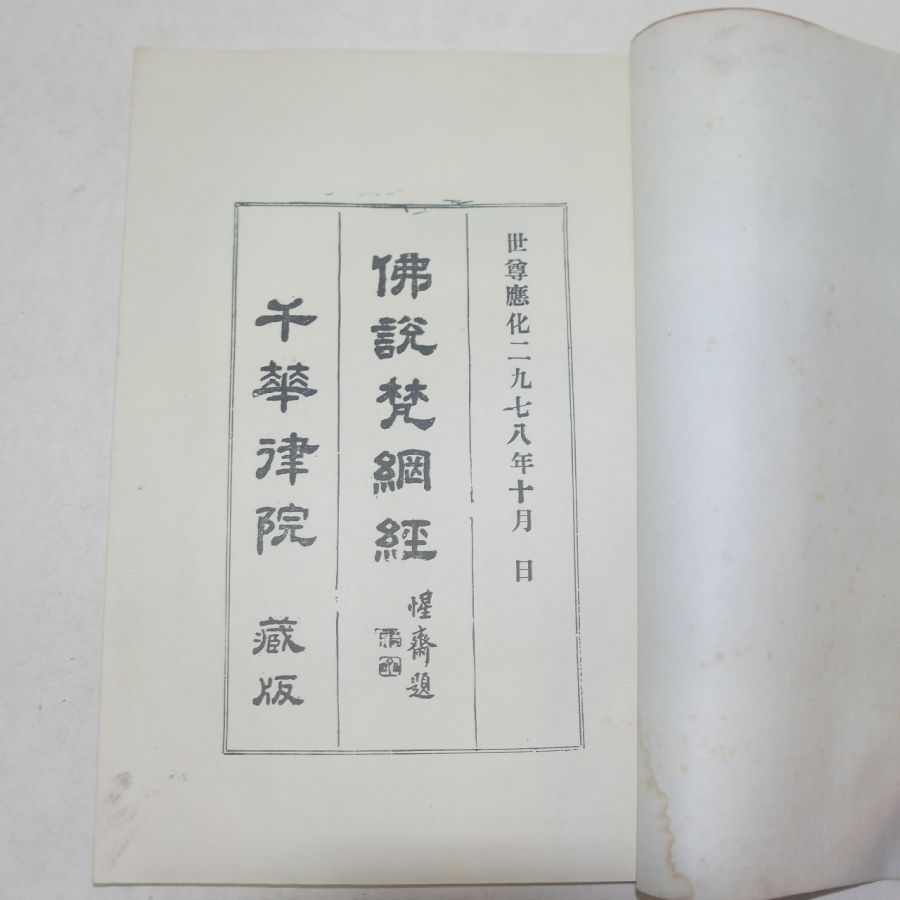 世尊應化二九七八年十月 日
佛說梵網經
惺齋題
千華律院 藏版